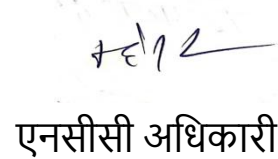 एनसीसी अधिकारी